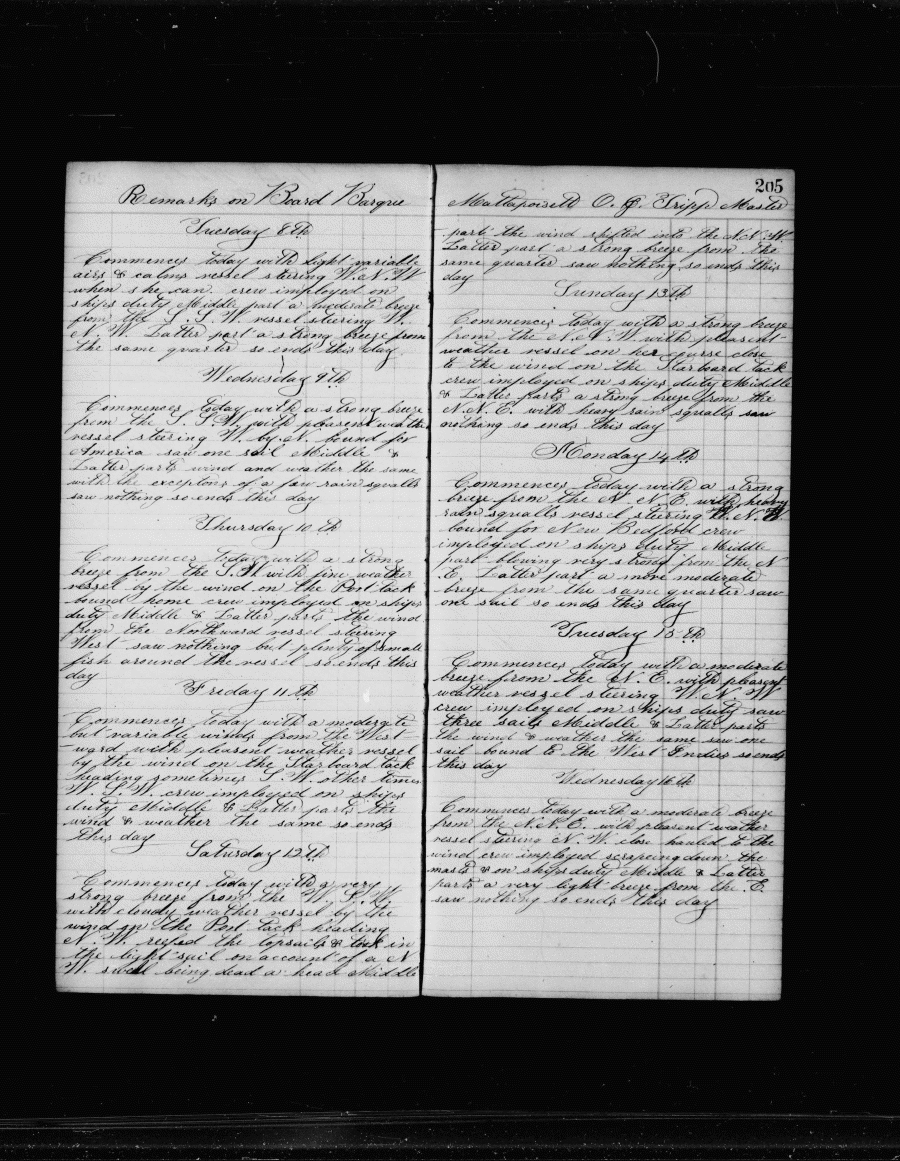 Remarks on Board Barque
Tuesday 8th
Commences today with light variable
airs & calms vessel steering W.N.W
when she can crew imployed on
ships duty Middle part a moderate breeze
from the S.S.W vessel steering W.
N.W. Latter part a strong breeze from
the same quarter so ends this day
Wednesday 9th
Commences today with a strong breeze
from the S.S.W. with pleasent weather
vessel steering W. by N. bound for
America saw one sail Middle &
Latter parts wind and weather the same
with the exceptons of a few rain squalls
saw nothing so ends this day
Thursday 10th
Commences today with a strong
breeze from the S.W with fine weather
vessel by the wind on the Port tack
bound home crew imployed on ships
duty Middle & Latter parts the wind
from the Northward vessel steering
West saw nothing but plenty of small
fish around the vessel so ends this
day
Friday 11th
Commences today with a moderate
but variable winds from the West-
ward with pleasent weather vessel
by the wind on the Starboard tack
heading sometimes S.W. other times
W.S.W. crew imployed on ships
duty Middle & Latter parts the
wind & weather the same so ends
this day
Saturday 12th
Commences today with a very
strong breeze from the W.S.W.
with cloudy weather vessel by the
wind on the Port tack heading
N.W. reefed the topsails & took in
the light sail on account of a N
W. swell being dead a head Middle
205
Mattapoisett O. G. Tripp Master
part the wind shifted into the N.N.W.
Latter part a strong breeze from the
same quarter saw nothing so ends this
day
Sunday 13th
Commences today with a strong breeze
from the N.N.W. with pleasent
weather vessel on her course close
to the wind on the Starboard tack
crew imployed on ships duty Middle
& Latter parts a strong breeze from the
N.N.E. with heavy rain squalls saw
nothing so ends this day
Monday 14th
Commences today with a strong
breeze from the N.N.E. with heavy
rain squalls vessel steering W.N.W.
bound for New Bedford crew
imployed on ships duty Middle
part blowing very strong from the N
E. Latter part a more moderate
breeze from the same quarter saw
one sail so ends this day
Tuesday 15th
Commences today with a moderate
breeze from the N.E. with pleasent
weather vessel steering W.N.W
crew imployed on ships duty saw
three sails Middle & Latter parts
the wind & weather the same saw one
sail bound to the West Indies so ends
this day
Wednesday 16th
Commences today with a moderate breeze
from the N.N.E. with pleasent weather
vessel steering N.W. close hauled to the
wind crew imployed scrapeing down the
masts & on ships duty Middle & Latter
parts a very light breeze from the E.
saw nothing so ends this day